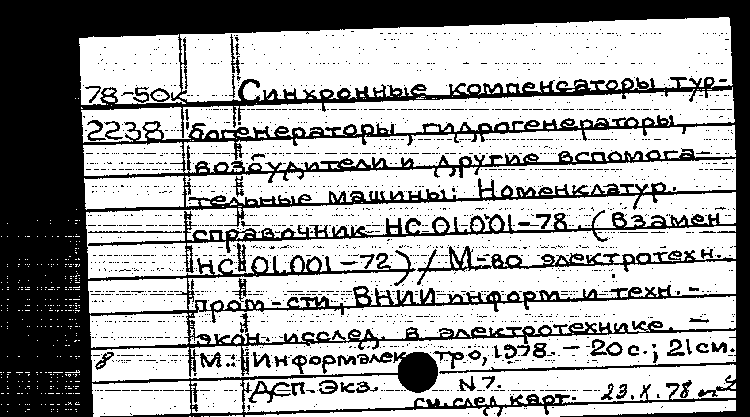 78-50к Синхронные компенсаторы, тур-
2238 богенераторы, гидрогенераторы,
возбудители и другие вспомога-
тельные машины: Номенклатур.
справочник НС 01.001-78. (Взамен
НС 01.001-72) / М-во электротехн.
пром-сти, ВНИИ информ. и техн.-
экон. исслед. в электротехнике. –
8 М.: Информэлектро, 1978. – 20 с.; 21 см.
ДСП. Экз. N 7.
см. след. карт. 23.X.78